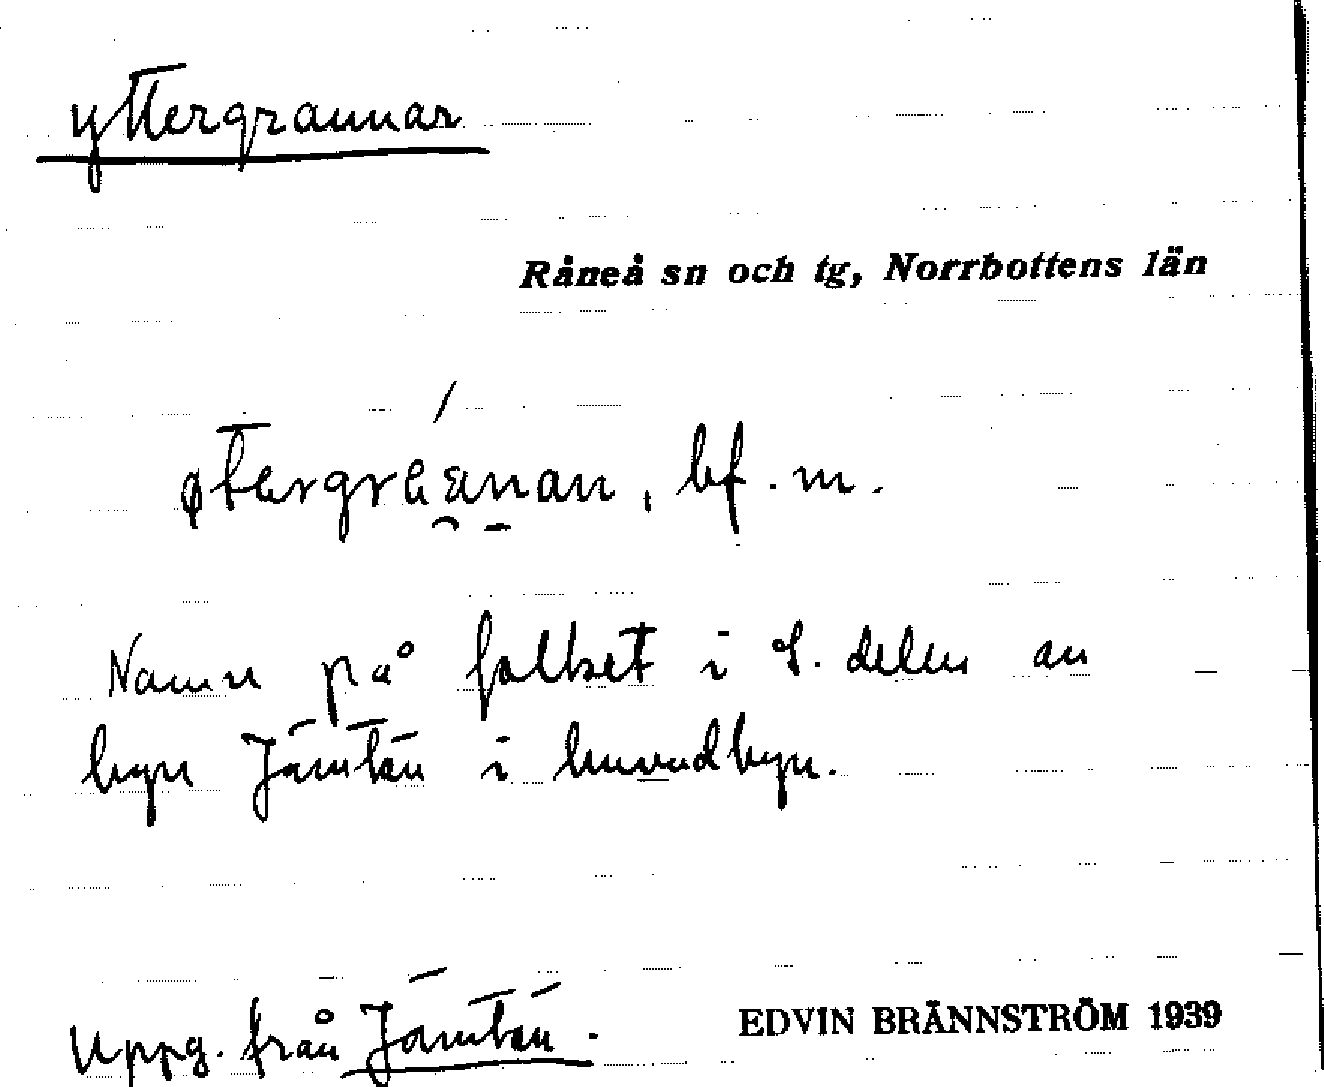 yttergrannar
Råneå sn och tg, Norrbottens län
bf. m.
Namn på folket i S. delen av
byn Jämtön i huvudbyn.
Uppg. från Jämtön.
EDVIN BRÄNNSTRÖM 1939